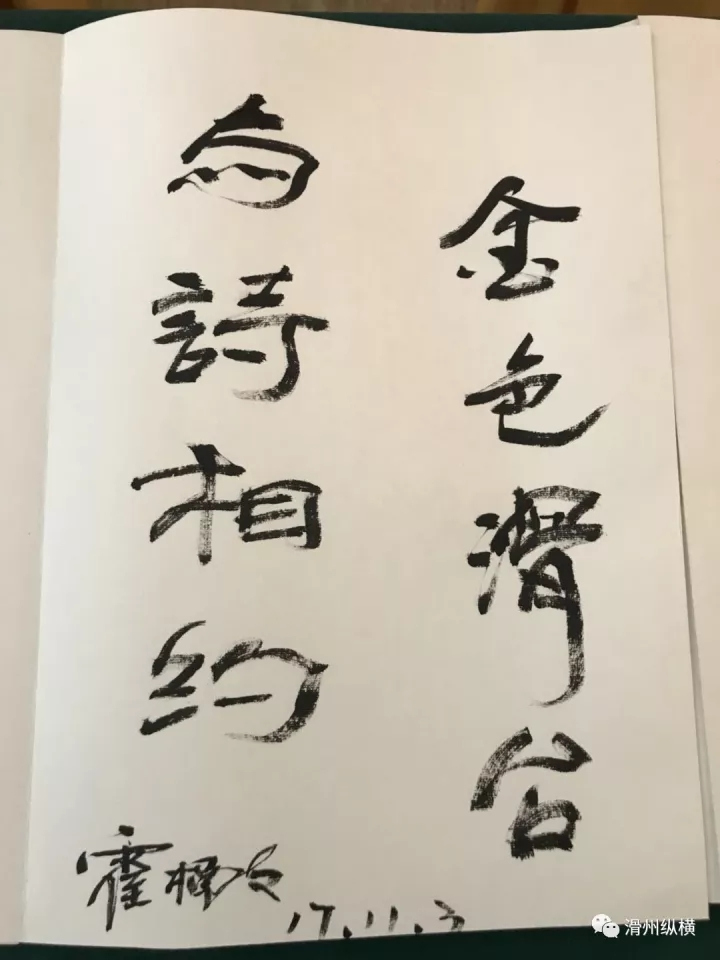 金色滑台
与詩相约
霍
17.11.3
滑州纵横